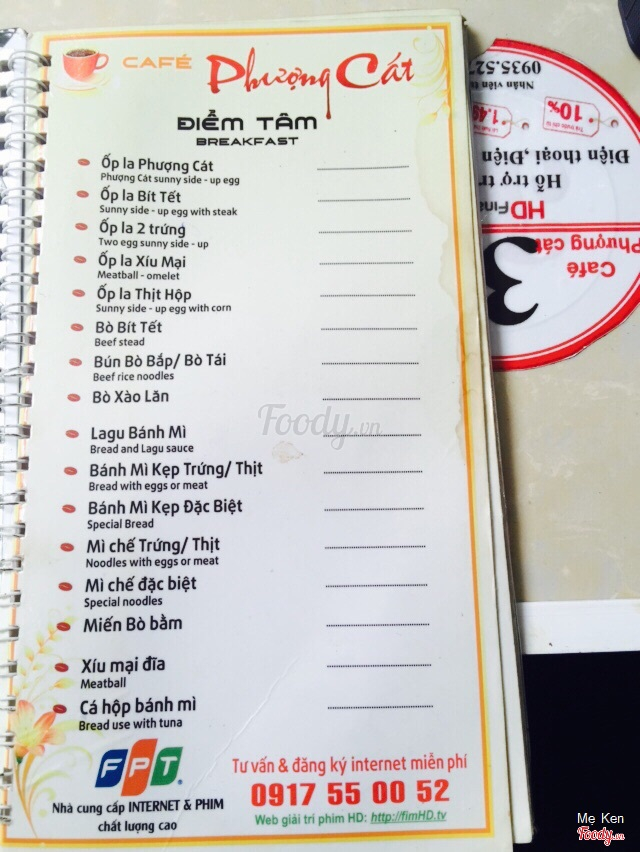 CAFÉ Phượng Cát
ĐIỂM TÂM
BREAKFAST
Ốp la Phượng Cát
Phượng Cát sunny side - up egg
Ốp la Bít Tết
Sunny side - up egg with steak
Ốp la 2 trứng
Two egg sunny side - up
Ốp la Xíu Mại
Meatball - omelet
Ốp la Thịt Hộp
Sunny side - up egg with corn
Bò Bít Tết
Beef stead
Bún Bò Bắp/ Bò Tái
Beef rice noodles
Bò Xào Lăn
Lagu Bánh Mì
Bread and Lagu sauce
Bánh Mì Kẹp Trứng/ Thịt
Bread with eggs or meat
Bánh Mì Kẹp Đặc Biệt
Special Bread
Mì chế Trứng/ Thịt
Noodles with eggs or meat
Mì chế đặc biệt
Special noodles
Miến Bò bằm
Xíu mại đĩa
Meatball
Cá hộp bánh mì
Bread use with tuna
FPT
Nhà cung cấp INTERNET & PHIM
chất lượng cao
Tư vấn & đăng ký internet miễn phí
0917 55 00 52
Web giải trí phim HD: http://fimHD.tv
Foody.vn
Café
Phượng cát
3
HDFina
Hỗ trợ tr
Điện thoại, Điện
10%
1.49
Nhân viên
0935.52
Mẹ Ken
Foody.vn